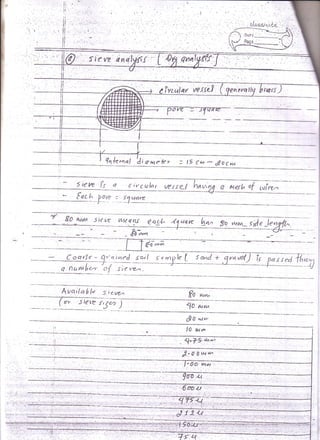 classmate
Date
Page
① sieve analysis [ Dry analysis ]
circular vessel (generally brass)
pore = square
Internal diameter = 15 cm - 20cm
- sieve is a circular vessel having a mesh of wires
- Each pore = square
* 80 mm sieve means each square has 80 mm side length
80mm
80mm
- Coarse-grained soil sample [ sand + gravel ) is passed through
a number of sieves.
Available sieves
80 mm
(or sieve sizes)
40 mm
20 mm
10 mm
4.75 mm
2.00 mm
1.00 mm
600 u
212 u
150 u
75 u